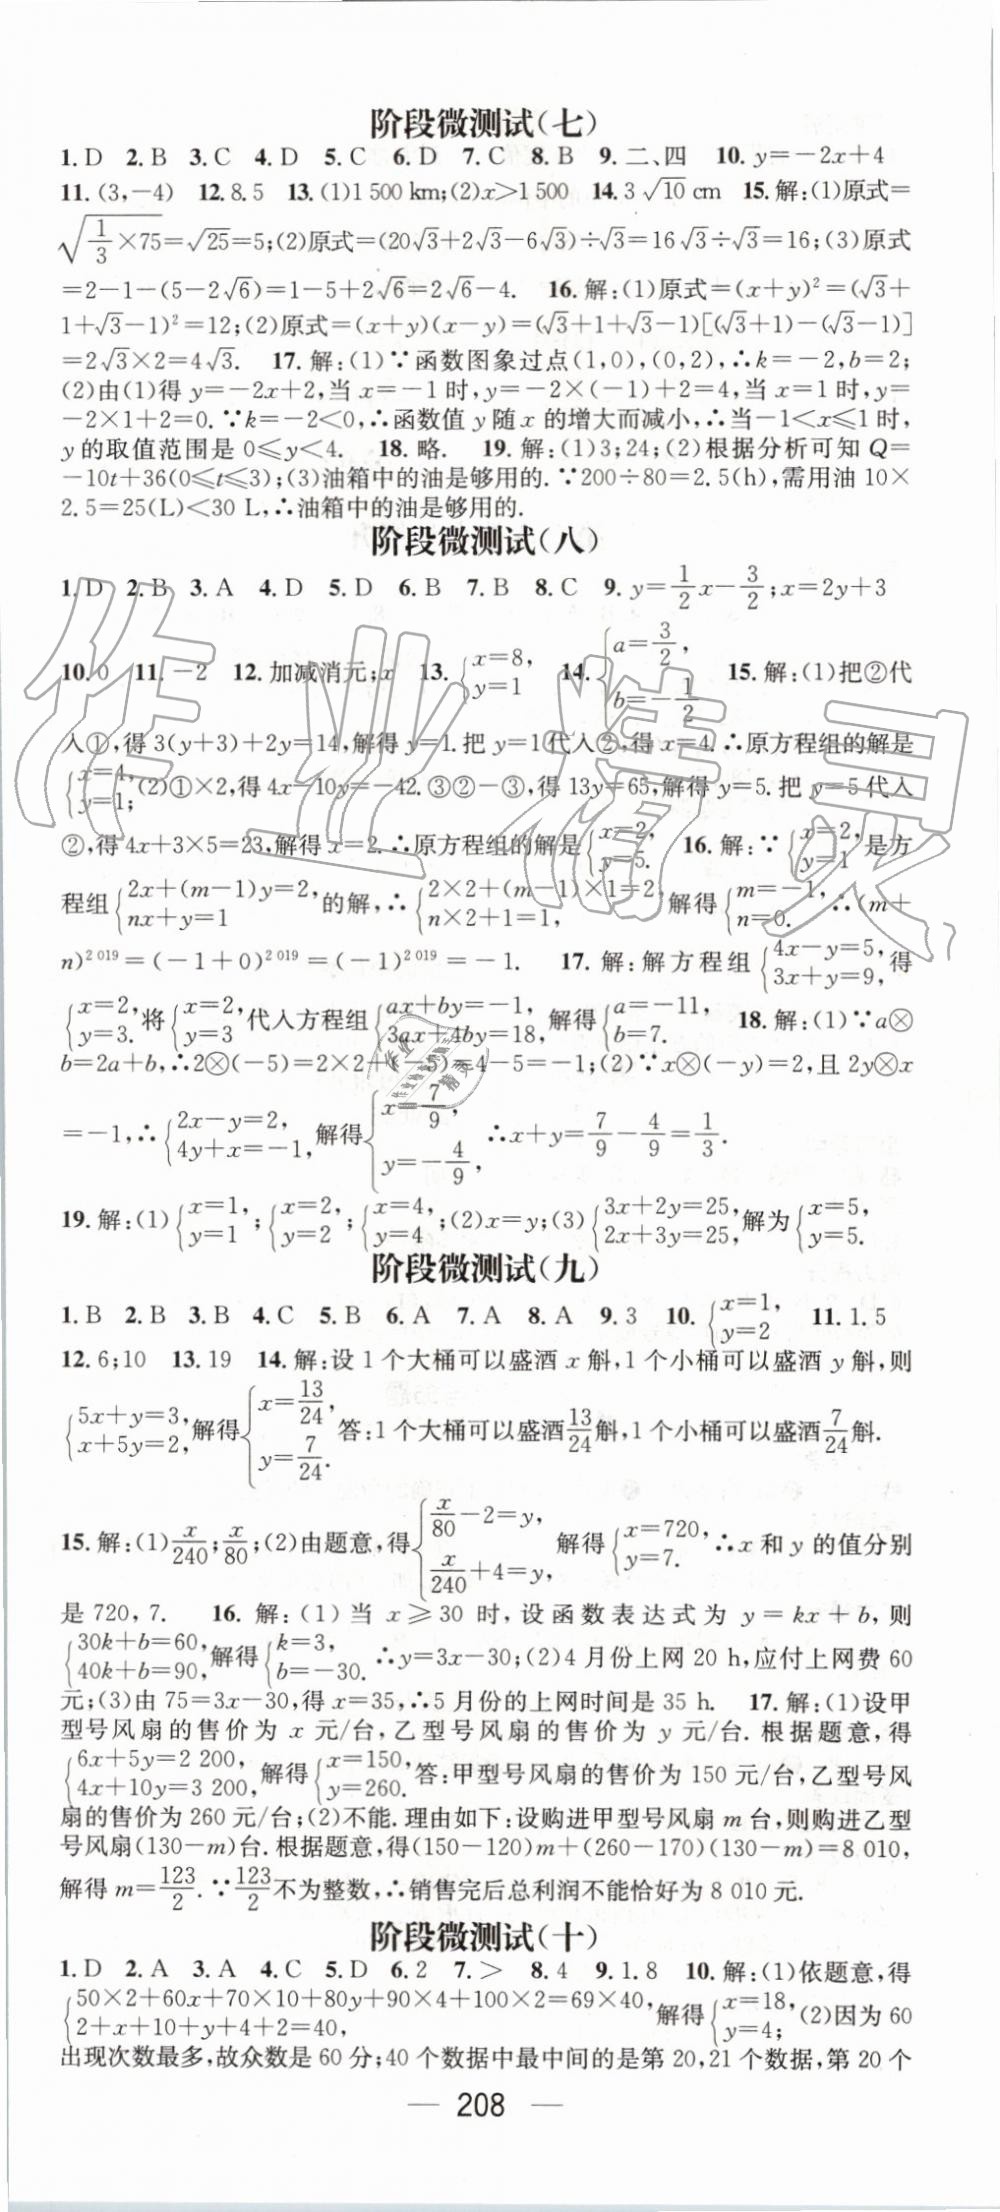 阶段微测试(七)
1. D 2. B 3. C 4. D 5. C 6. D 7. C 8. B 9. 二、四 10. y=-2x+4
11. (3,-4) 12. 8.5 13. (1)1 500 km;(2)x>1 500 14. 3√10 cm 15. 解:(1)原式=
√(1/3×75)=√25=5;(2)原式=(20√3+2√3-6√3)÷√3=16√3÷√3=16;(3)原式
=2-1-(5-2√6)=1-5+2√6=2√6-4. 16. 解:(1)原式=(x+y)²=(√3+
1+√3-1)²=12;(2)原式=(x+y)(x-y)=(√3+1+√3-1)[(√3+1)-(√3-1)]
=2√3×2=4√3. 17. 解:(1)∵函数图象过点(1,0),(0,2),∴k=-2,b=2;
(2)由(1)得 y=-2x+2,当 x=-1 时,y=-2×(-1)+2=4,当 x=1 时,y=
-2×1+2=0.∵k=-2<0,∴函数值 y 随 x 的增大而减小,∴当-1<x≤1 时,
y 的取值范围是 0≤y<4. 18. 略. 19. 解:(1)3;24;(2)根据分析可知 Q=
-10t+36(0≤t≤3);(3)油箱中的油是够用的.∵200÷80=2.5(h),需用油 10×
2.5=25(L)<30 L,∴油箱中的油是够用的.
阶段微测试(八)
1. D 2. B 3. A 4. D 5. D 6. B 7. B 8. C 9. y=1/2x-3/2;x=2y+3
10. 0 11. -2 12. 加减消元;x 13. {x=8, y=1 14. {a=3/2, b=-1/2 15. 解:(1)把②代
入①,得 3(y+3)+2y=14,解得 y=1.把 y=1代入②,得 x=4.∴原方程组的解是
{x=4, y=1; (2)①×2,得 4x-10y=-42.③②-③,得 13y=65,解得 y=5.把 y=5 代入
②,得 4x+3×5=23,解得 x=2.∴原方程组的解是{x=2, y=5. 16. 解:∵{x=2, y=1 是方
程组{2x+(m-1)y=2, nx+y=1 的解,∴{2×2+(m-1)×1=2, n×2+1=1, 解得{m=-1, n=0. ∴(m+
n)²⁰¹⁹=(-1+0)²⁰¹⁹=(-1)²⁰¹⁹=-1. 17. 解:解方程组{4x-y=5, 3x+y=9, 得
{x=2, y=3. 将{x=2, y=3 代入方程组{ax+by=-1, 3ax+4by=18, 解得{a=-11, b=7. 18. 解:(1)∵a⊗
b=2a+b,∴2⊗(-5)=2×2+(-5)=4-5=-1;(2)∵x⊗(-y)=2,且 2y⊗x
=-1,∴{2x-y=2, 4y+x=-1, 解得{x=7/9, y=-4/9, ∴x+y=7/9-4/9=1/3.
19. 解:(1){x=1, y=1;{x=2, y=2;{x=4, y=4;(2)x=y;(3){3x+2y=25, 2x+3y=25, 解为{x=5, y=5.
阶段微测试(九)
1. B 2. B 3. B 4. C 5. B 6. A 7. A 8. A 9. 3 10. {x=1, y=2 11. 1.5
12. 6;10 13. 19 14. 解:设 1 个大桶可以盛酒 x 斛,1 个小桶可以盛酒 y 斛,则
{5x+y=3, x+5y=2, 解得{x=13/24, y=7/24. 答:1 个大桶可以盛酒13/24斛,1 个小桶可以盛酒7/24斛.
15. 解:(1)x/240;x/80;(2)由题意,得{x/80-2=y, x/240+4=y, 解得{x=720, y=7. ∴x 和 y 的值分别
是 720,7. 16. 解:(1)当 x≥30 时,设函数表达式为 y=kx+b,则
{30k+b=60, 40k+b=90, 解得{k=3, b=-30. ∴y=3x-30;(2)4 月份上网 20 h,应付上网费 60
元;(3)由 75=3x-30,得 x=35,∴5 月份的上网时间是 35 h. 17. 解:(1)设甲
型号风扇的售价为 x 元/台,乙型号风扇的售价为 y 元/台.根据题意,得
{6x+5y=2 200, 4x+10y=3 200, 解得{x=150, y=260. 答:甲型号风扇的售价为 150 元/台,乙型号风
扇的售价为 260 元/台;(2)不能.理由如下:设购进甲型号风扇 m 台,则购进乙型
号风扇(130-m)台.根据题意,得(150-120)m+(260-170)(130-m)=8 010,
解得 m=123/2.∵123/2不为整数,∴销售完后总利润不能恰好为 8 010 元.
阶段微测试(十)
1. D 2. A 3. A 4. C 5. D 6. 2 7. > 8. 4 9. 1.8 10. 解:(1)依题意,得
{50×2+60x+70×10+80y+90×4+100×2=69×40, 2+x+10+y+4+2=40, 解得{x=18, y=4; (2)因为 60
出现次数最多,故众数是 60 分;40 个数据中最中间的是第 20,21 个数据,第 20 个
— 208 —
作业精灵